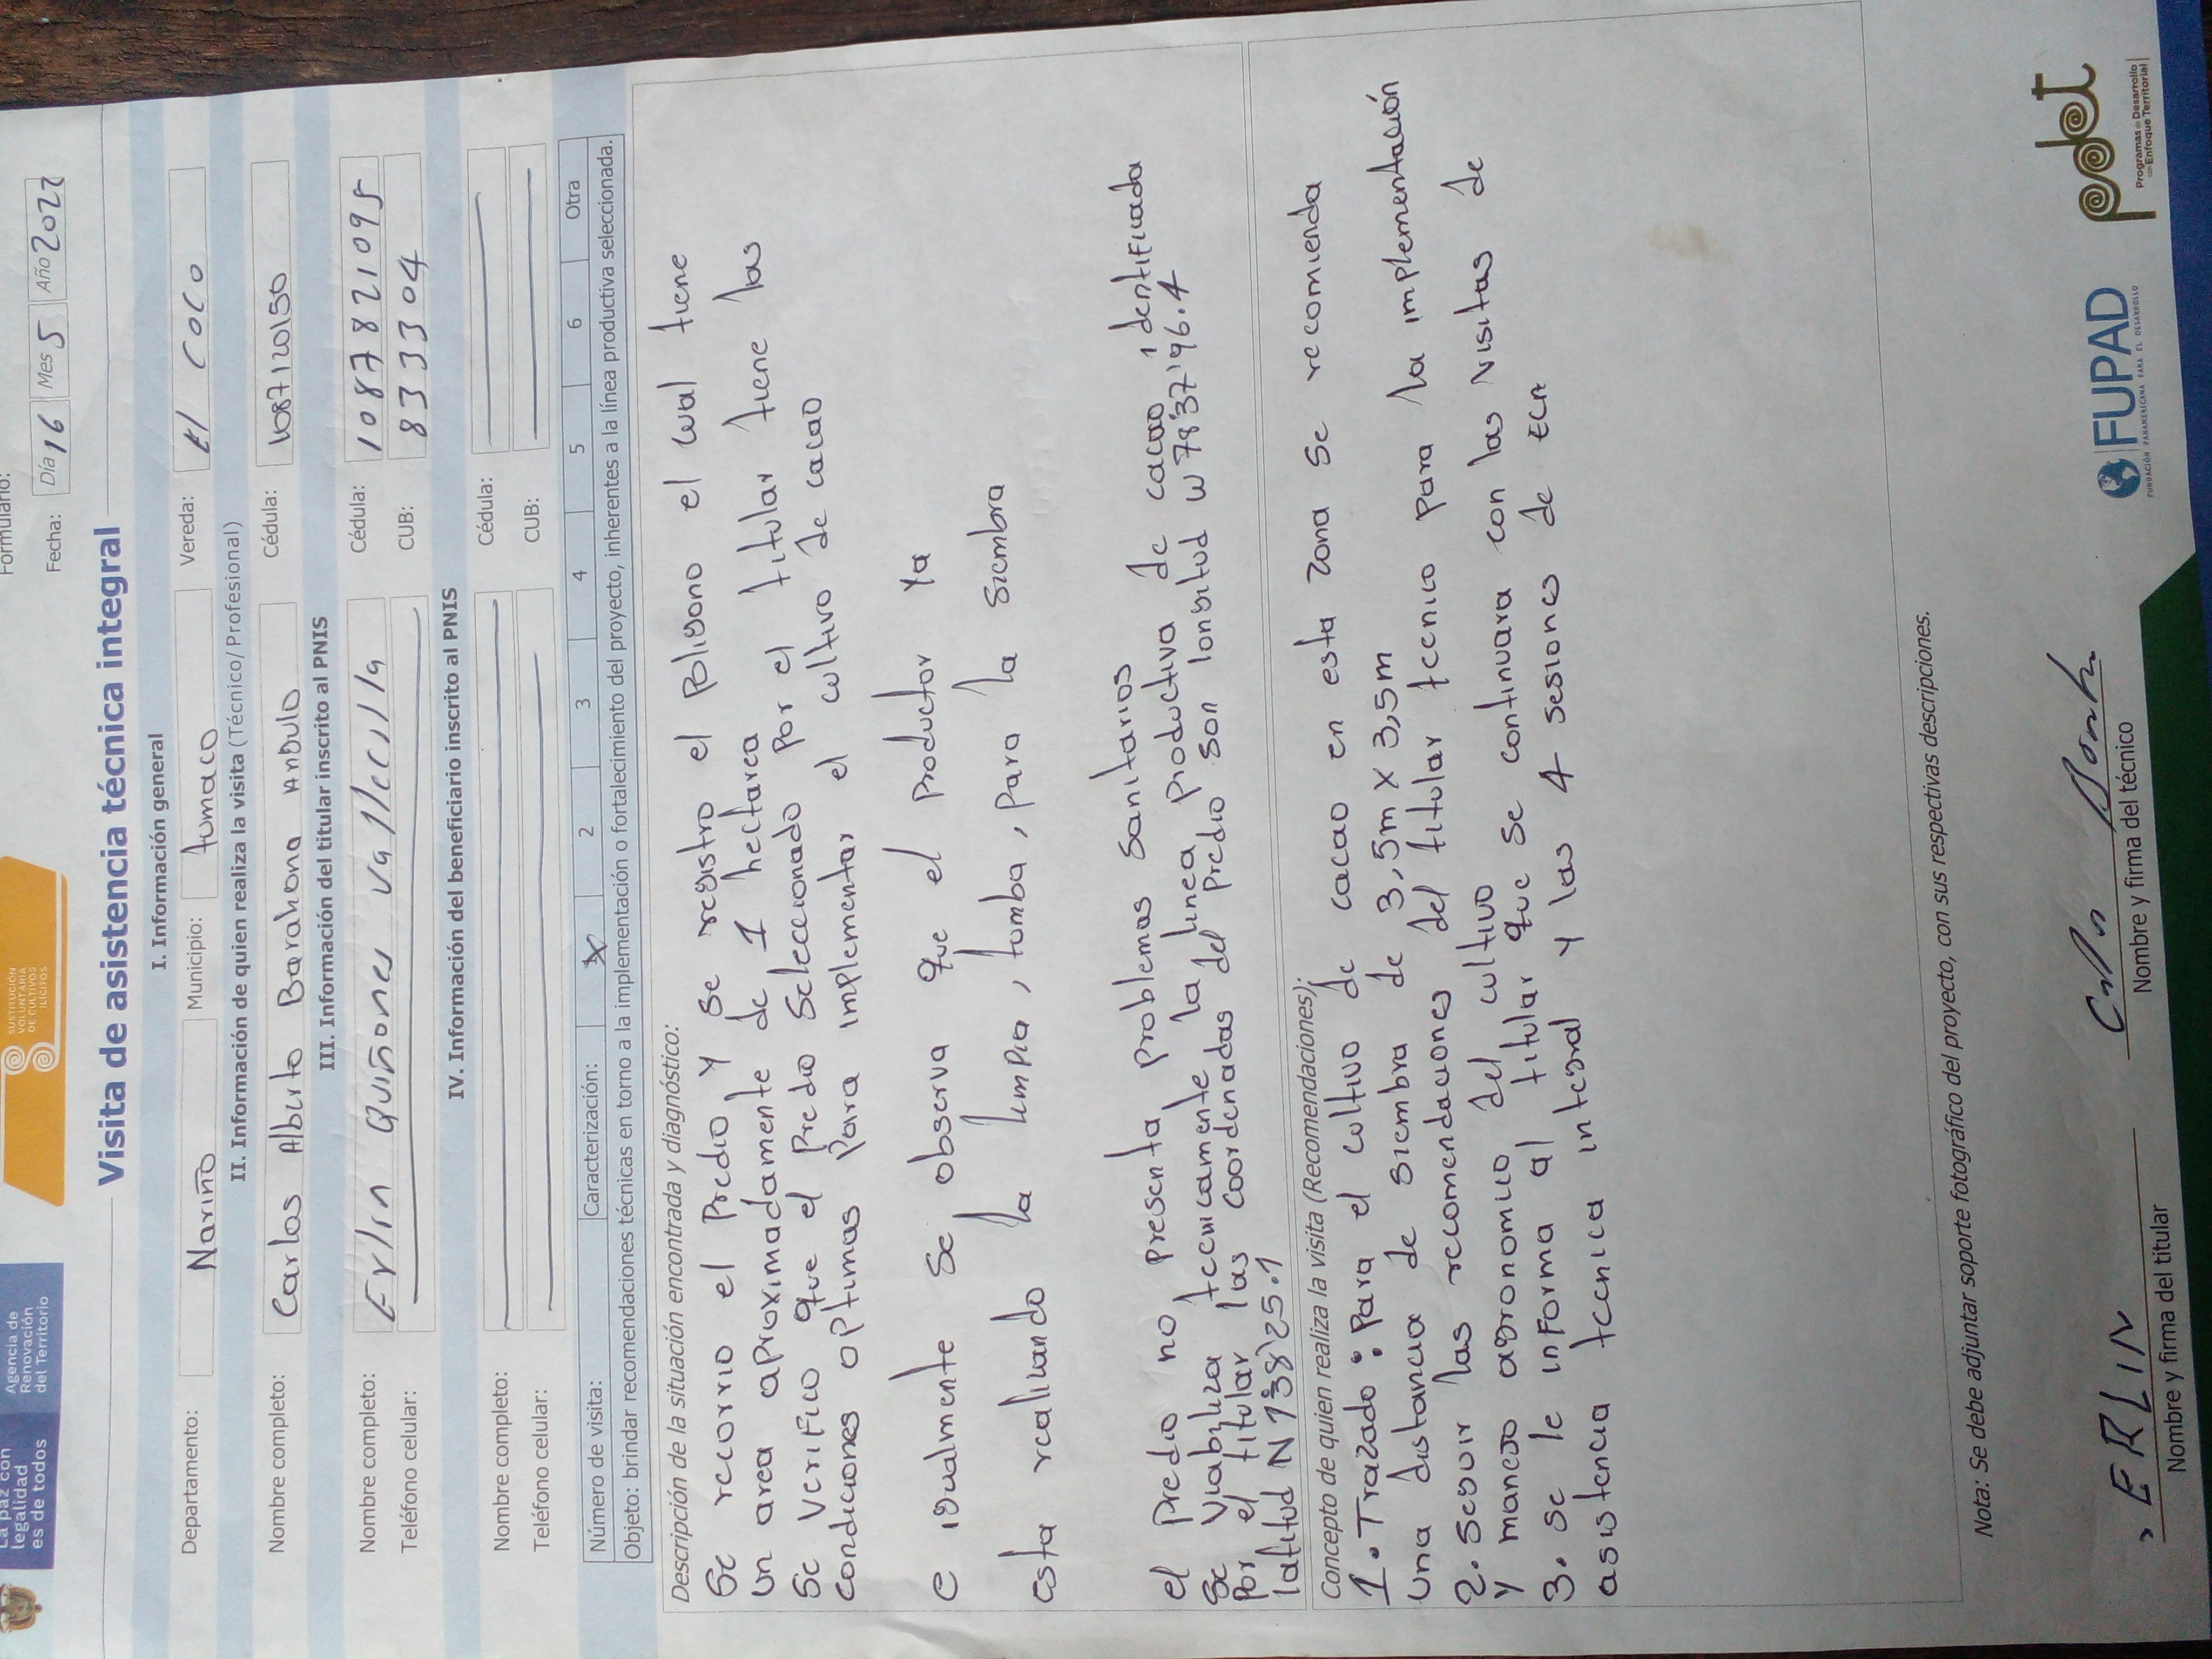 La paz con
legalidad
es de todos
Agencia de
Renovación
del Territorio
SUSTITUCIÓN
VOLUNTARIA
DE CULTIVOS
ILÍCITOS
Formulario:
Fecha: Día 16 Mes 5 Año 2022
Visita de asistencia técnica integral
I. Información general
Departamento: Nariño Municipio: tumaco Vereda: El coco
II. Información de quien realiza la visita (Técnico/ Profesional)
Nombre completo: Carlos Alberto Barahona Angulo Cédula: 1087120150
III. Información del titular inscrito al PNIS
Nombre completo: Erlin Quiñones Vallecilla Cédula: 1087821095
Teléfono celular: CUB: 8333304
IV. Información del beneficiario inscrito al PNIS
Nombre completo: Cédula:
Teléfono celular: CUB:
Número de visita: Caracterización: 1 X 2 3 4 5 6 Otra
Objeto: brindar recomendaciones técnicas en torno a la implementación o fortalecimiento del proyecto, inherentes a la línea productiva seleccionada.
Descripción de la situación encontrada y diagnóstico:
Se recorrio el Predio y se registro el Poligono el cual tiene
un area aproximadamente de 1 hectarea
Se verifico que el Predio Seleccionado por el titular tiene las
condiciones optimas para implementar el cultivo de cacao
e igualmente se observa que el productor ya
esta realizando la limpia, tumba, para la siembra
el predio no presenta problemas sanitarios
Se viabiliza tecnicamente la linea productiva de cacao identificada
por el titular las coordenadas del predio son longitud w 78°37'96.4
latitud N 1°38'25.1
Concepto de quien realiza la visita (Recomendaciones);
1. Trazado: Para el cultivo de cacao en esta zona se recomienda
una distancia de siembra de 3,5m x 3,5m
2. seguir las recomendaciones del titular tecnico para la implementación
y manejo agronomico del cultivo
3. se le informa al titular que se continuara con las visitas de
asistencia tecnica integral y las 4 sesiones de ECA
Nota: Se debe adjuntar soporte fotográfico del proyecto, con sus respectivas descripciones.
ERLIN
Nombre y firma del titular
Nombre y firma del técnico
FUPAD
FUNDACIÓN PANAMERICANA PARA EL DESARROLLO
pdet
Programas de Desarrollo
con Enfoque Territorial